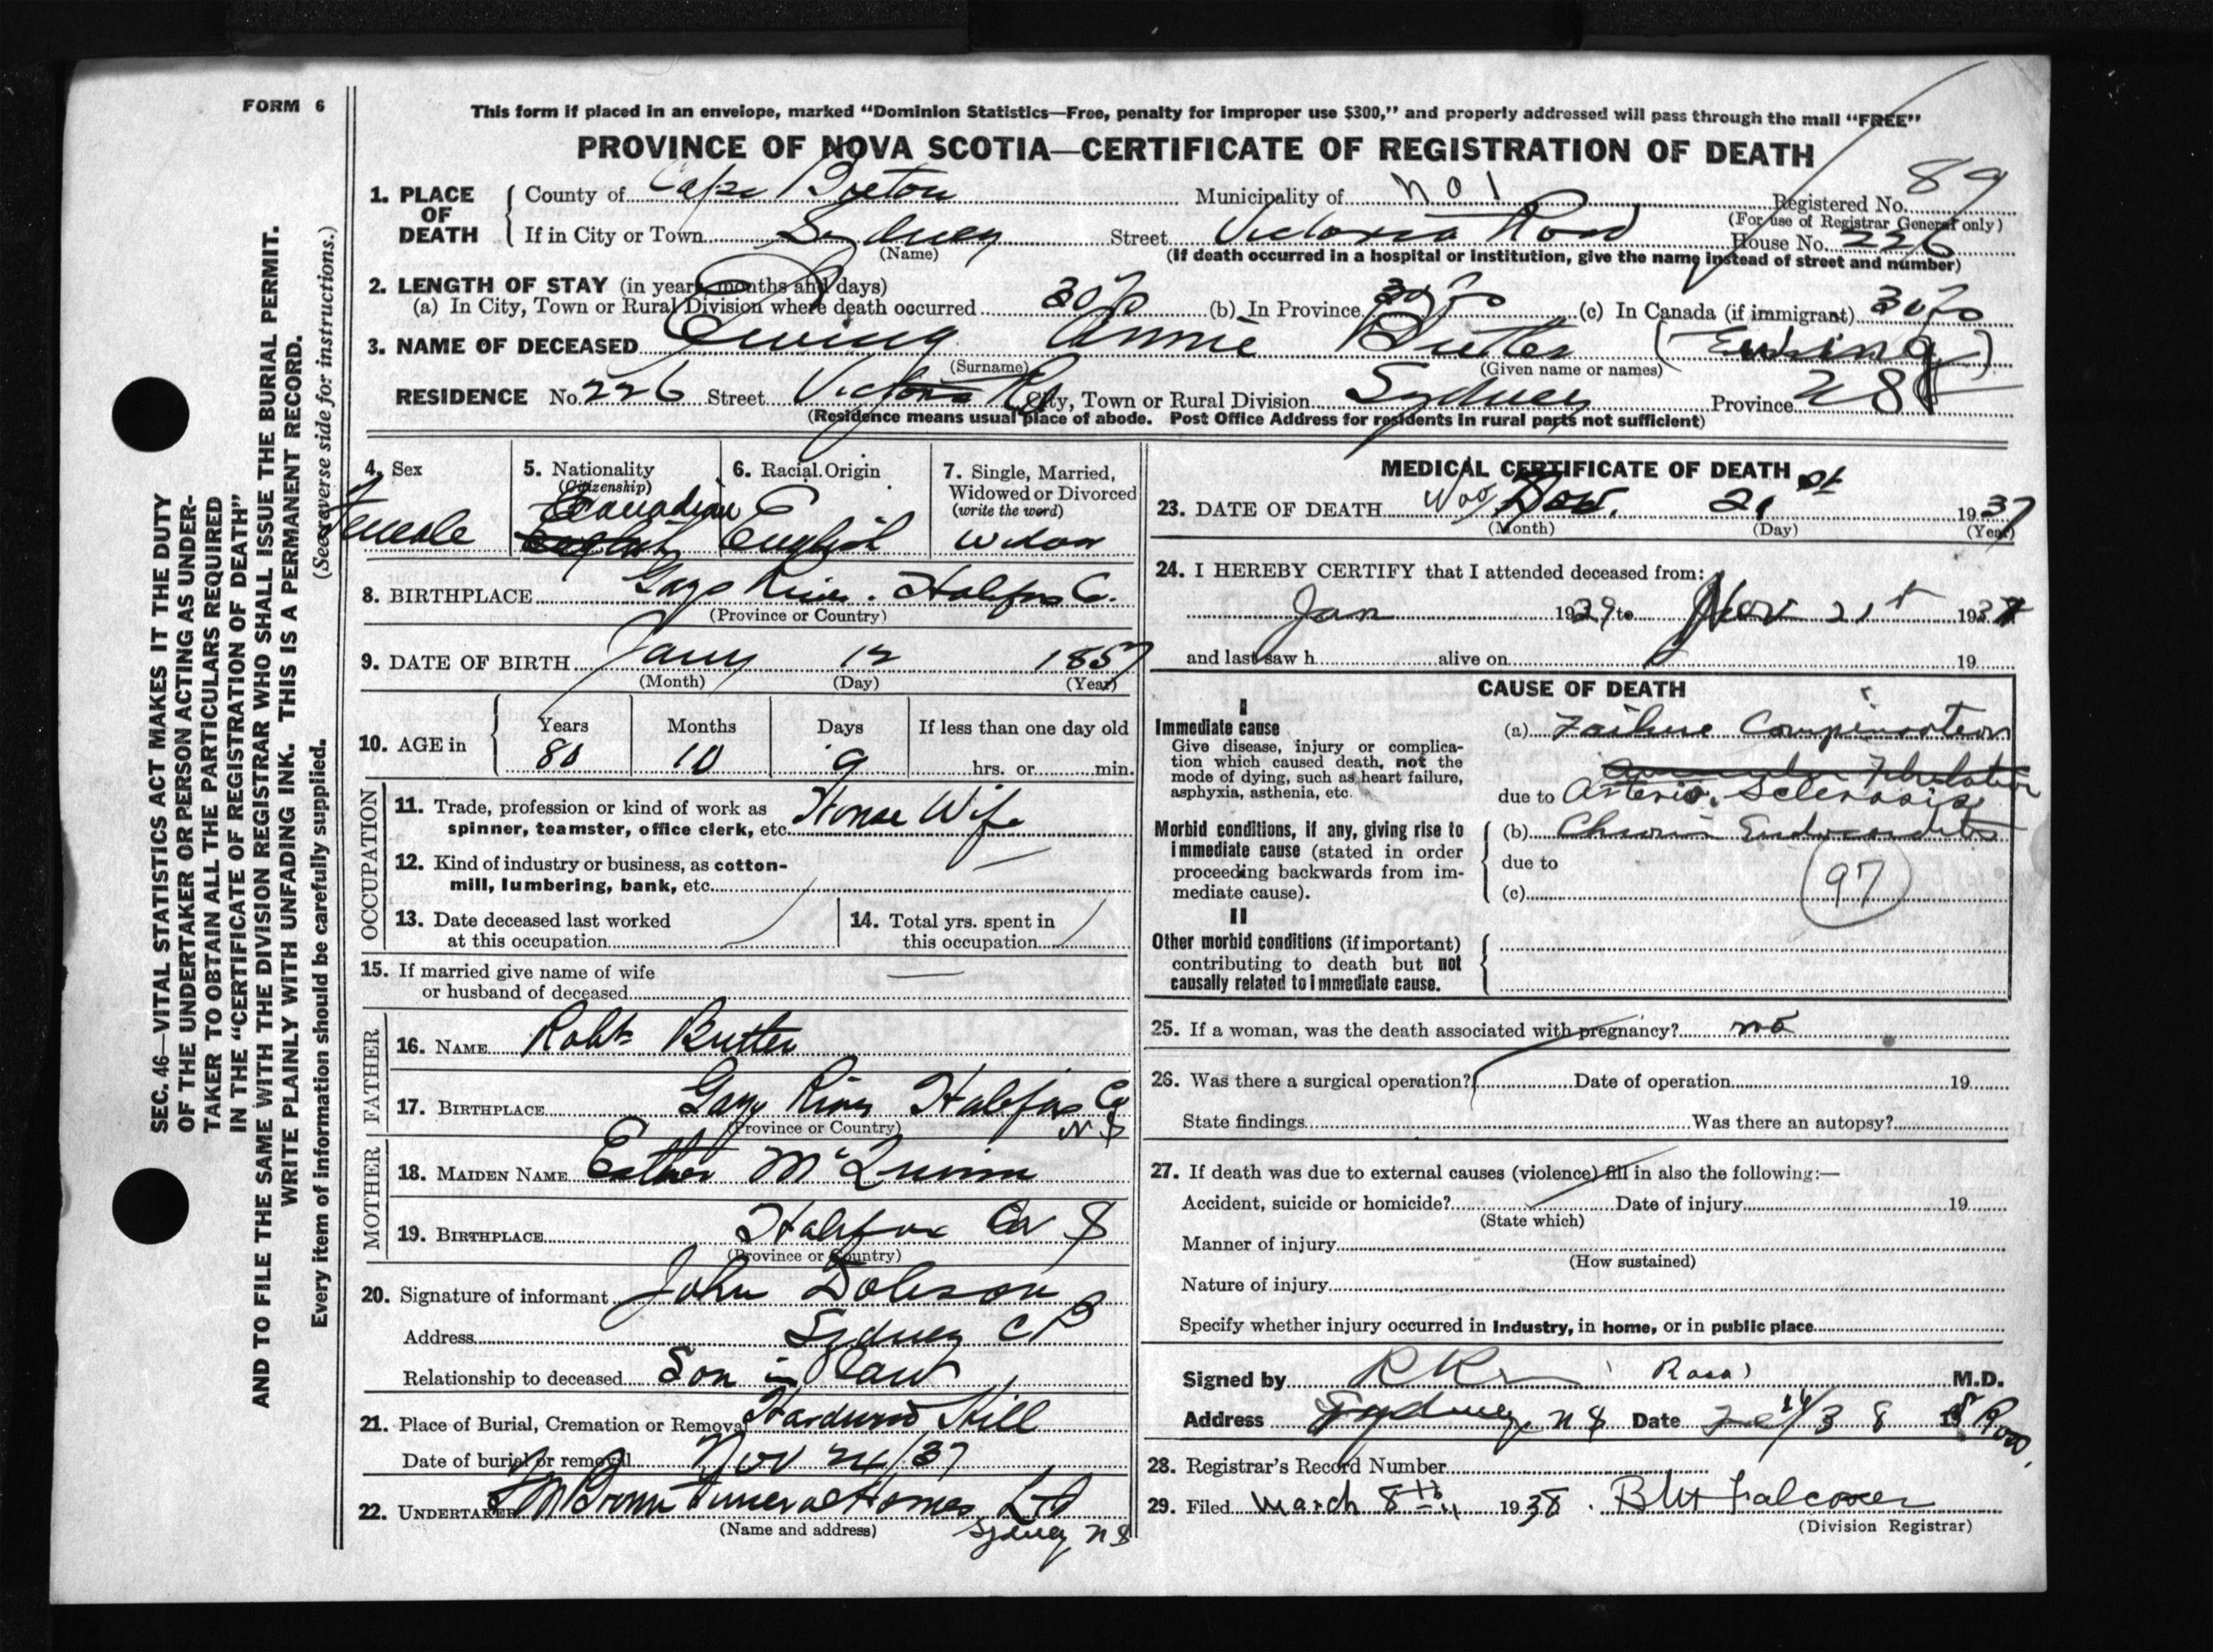 FORM 6
This form if placed in an envelope, marked "Dominion Statistics—Free, penalty for improper use $300," and properly addressed will pass through the mail "FREE"
PROVINCE OF NOVA SCOTIA—CERTIFICATE OF REGISTRATION OF DEATH
SEC. 46—VITAL STATISTICS ACT MAKES IT THE DUTY
OF THE UNDERTAKER OR PERSON ACTING AS UNDER-
TAKER TO OBTAIN ALL THE PARTICULARS REQUIRED
IN THE "CERTIFICATE OF REGISTRATION OF DEATH"
AND TO FILE THE SAME WITH THE DIVISION REGISTRAR WHO SHALL ISSUE THE BURIAL PERMIT.
WRITE PLAINLY WITH UNFADING INK. THIS IS A PERMANENT RECORD.
Every item of information should be carefully supplied. (See reverse side for instructions.)
1. PLACE OF DEATH
County of Cape Breton Municipality of No 1 Registered No. 89
(For use of Registrar General only)
If in City or Town Sydney Street Victoria Road House No. 226
(Name) (If death occurred in a hospital or institution, give the name instead of street and number)
2. LENGTH OF STAY (in years, months and days)
(a) In City, Town or Rural Division where death occurred 30 (b) In Province 30 (c) In Canada (if immigrant) 30
3. NAME OF DECEASED Ewing Annie Butler (Ewing)
(Surname) (Given name or names)
RESIDENCE No. 226 Street Victoria Rd City, Town or Rural Division Sydney Province 28
(Residence means usual place of abode. Post Office Address for residents in rural parts not sufficient)
4. Sex
Female
5. Nationality
(Citizenship)
Canadian
English
6. Racial Origin
English
7. Single, Married,
Widowed or Divorced
(write the word)
Widow
8. BIRTHPLACE Gays River. Halifax Co.
(Province or Country)
9. DATE OF BIRTH Jany 12 1857
(Month) (Day) (Year)
10. AGE in
Years Months Days If less than one day old
80 10 9 hrs. or min.
OCCUPATION
11. Trade, profession or kind of work as
spinner, teamster, office clerk, etc. House Wife
12. Kind of industry or business, as cotton-
mill, lumbering, bank, etc.
13. Date deceased last worked
at this occupation
14. Total yrs. spent in
this occupation
15. If married give name of wife
or husband of deceased
FATHER
16. NAME Robt Butler
17. BIRTHPLACE Gays River Halifax Co
(Province or Country) N S
MOTHER
18. MAIDEN NAME Esther McQuinn
19. BIRTHPLACE Halifax Co N S
(Province or Country)
20. Signature of informant John Dobson
Address Sydney C B
Relationship to deceased Son in law
21. Place of Burial, Cremation or Removal Hardwood Hill
Date of burial or removal Nov 24/37
22. UNDERTAKER Brown Funeral Homes Ltd
(Name and address) Sydney N S
MEDICAL CERTIFICATE OF DEATH
23. DATE OF DEATH Nov 21 st 1937
(Month) (Day) (Year)
24. I HEREBY CERTIFY that I attended deceased from:
Jan 1929 to Nov 21st 1937
and last saw h alive on 19
CAUSE OF DEATH
I
Immediate cause
Give disease, injury or complica-
tion which caused death, not the
mode of dying, such as heart failure,
asphyxia, asthenia, etc.
(a) Failure Compensation
Auricular Fibrillation
due to Arterio. Sclerosis
Morbid conditions, if any, giving rise to
immediate cause (stated in order
proceeding backwards from im-
mediate cause).
(b) Chronic Endocarditis
due to
(c)
97
II
Other morbid conditions (if important)
contributing to death but not
causally related to immediate cause.
25. If a woman, was the death associated with pregnancy? no
26. Was there a surgical operation? Date of operation 19
State findings Was there an autopsy?
27. If death was due to external causes (violence) fill in also the following:—
Accident, suicide or homicide? Date of injury 19
(State which)
Manner of injury
(How sustained)
Nature of injury
Specify whether injury occurred in Industry, in home, or in public place
Signed by Ross M.D.
Address Sydney, N S Date 38 19
28. Registrar's Record Number
29. Filed March 8th 1938. Falconer
(Division Registrar)